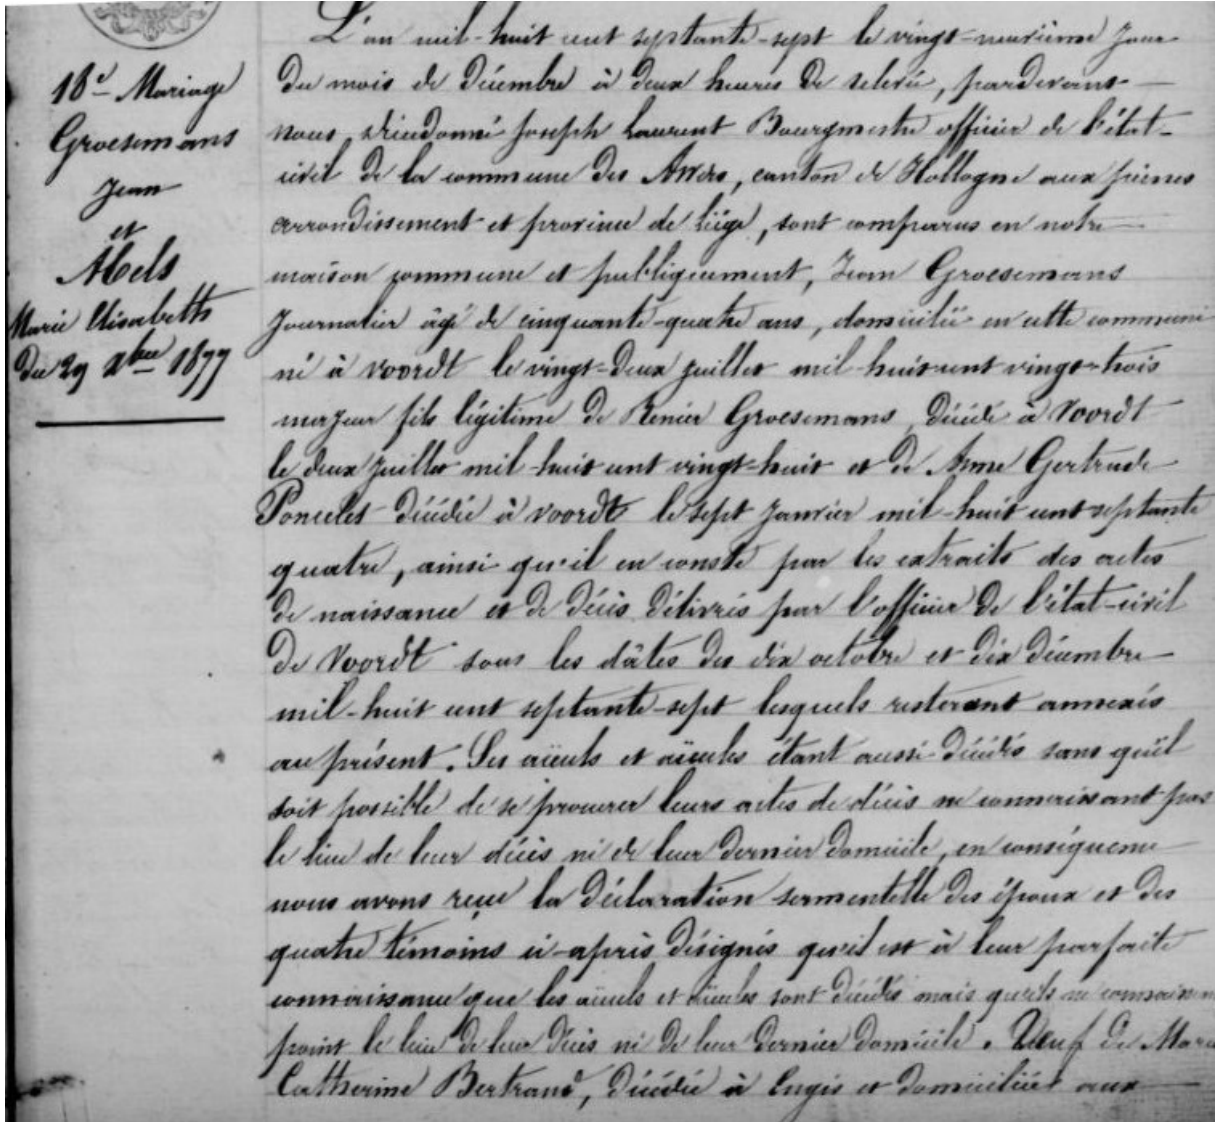 18e Mariage
Groesemans
Jean
et
Abels
Marie Elisabeth
du 29 Xbre 1877
L'an mil-huit cent septante-sept le vingt-neuvième jour
du mois de décembre à deux heures de relevée, pardevant
nous, Dieudonné Joseph Laurent Bourgmestre officier de l'état-
civil de la commune des Awirs, canton de Hollogne aux pierres
arrondissement et province de Liége, sont comparus en notre
maison commune et publiquement, Jean Groesemans
journalier âgé de cinquante-quatre ans, domicilié en cette commune
né à Voordt le vingt-deux juillet mil-huit cent vingt-trois
majeur fils légitime de Renier Groesemans, décédé à Voordt
le deux juillet mil-huit cent vingt-huit et de Anne Gertrude
Poncelet décédée à Voordt le sept janvier mil-huit cent septante
quatre, ainsi qu'il en conste par les extraits des actes
de naissance et de décès délivrés par l'officier de l'état-civil
de Voordt sous les dâtes des dix octobre et dix décembre
mil-huit cent septante-sept lesquels resteront annexés
au présent. Ses aïeuls et aïeules étant aussi décédés sans qu'il
soit possible de se procurer leurs actes de décès ne connaissant pas
le lieu de leur décès ni de leur dernier domicile, en conséquence
nous avons reçu la déclaration sermentelle des époux et des
quatre témoins ci-après désignés qu'il est à leur parfaite
connaissance que les aïeuls et aïeules sont décédés mais qu'ils ne connaissent
point le lieu de leur décès ni de leur dernier domicile. Veuf de Marie
Catherine Bertrand, décédée à Engis et domiciliée aux